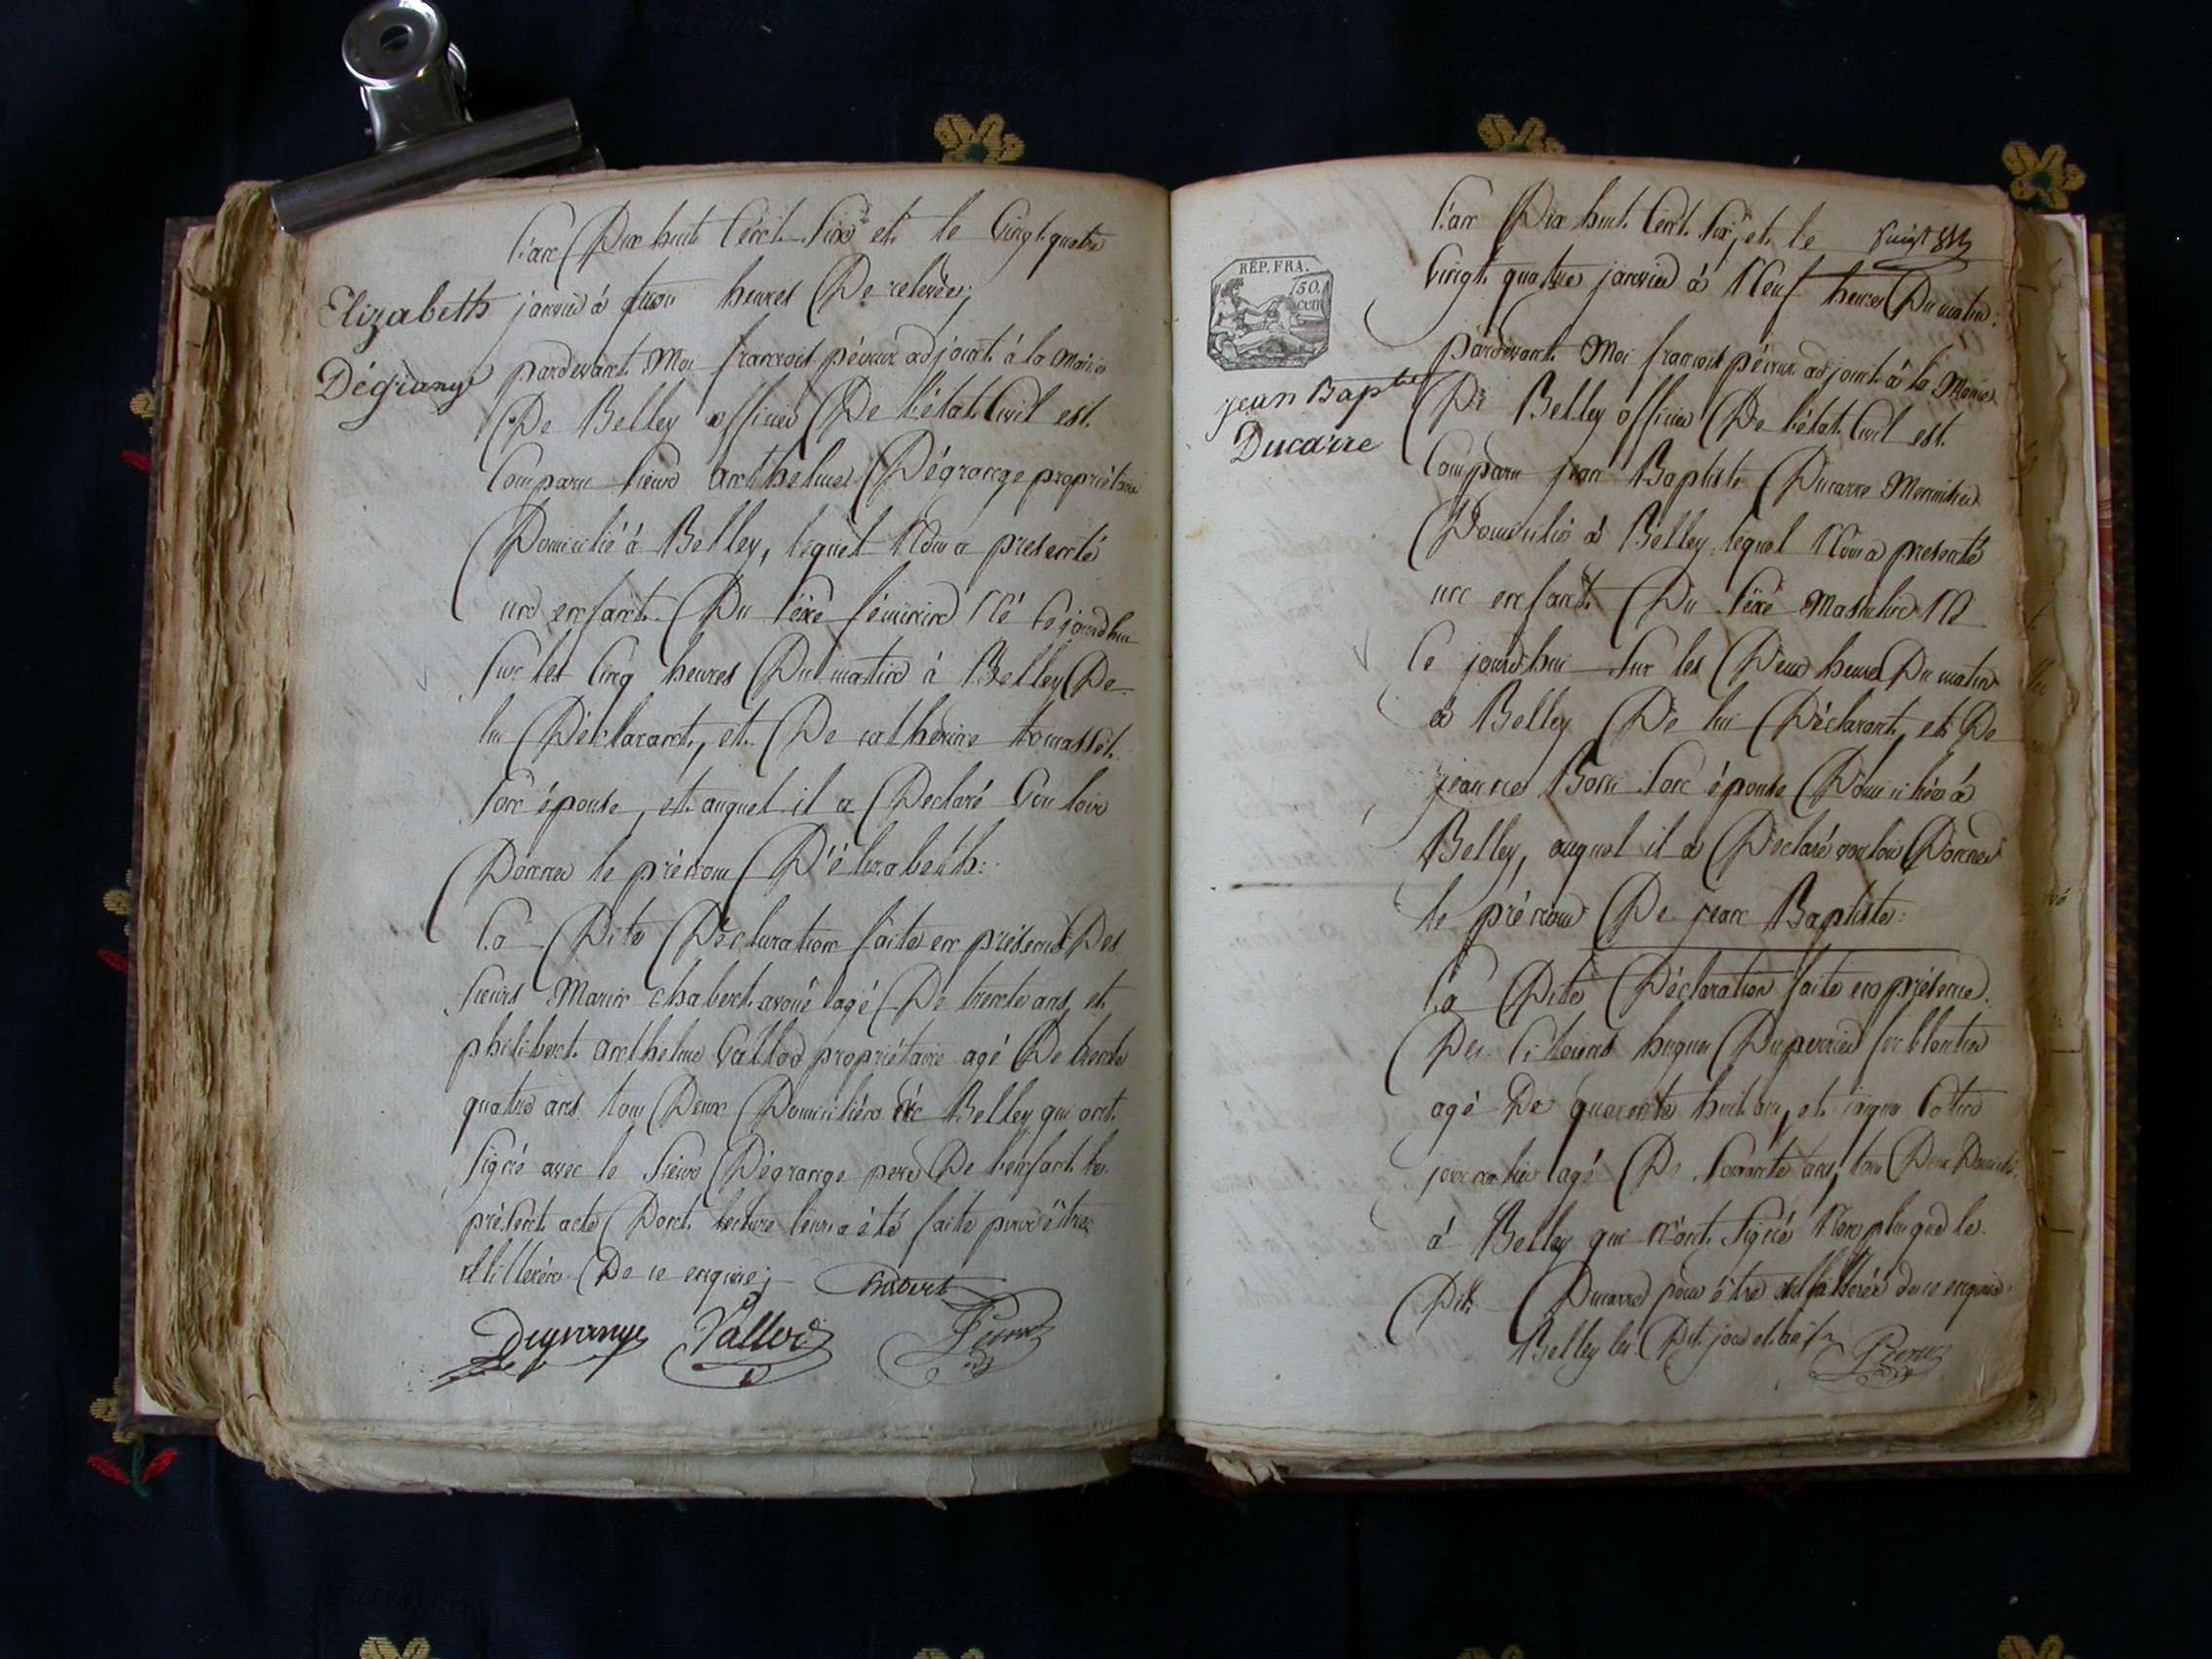 L'an Dix huit Cent Six et le Vingt quatre
janvier à trois heures De relevée;
Elizabeth
Dégrange
pardevant Moi françois péroux adjoint à la Mairie
De Belley officier De l'état Civil est
Comparu sieur Anthelme Dégrange propriétaire
Domicilié à Belley, lequel Nous a presenté
un enfant Du séxe féminin Né Ce jourd'hui
sur les Cinq heures Du matin à Belley De
lui Déclarant, et De catherine tomasset
son épouse, et auquel il a Declaré Vouloir
Donner le prénom D'élizabeth:
La Dite Déclaration faite en présence Des
sieurs Marin Chabert avoué agé De trente ans, et
philibert anthelme Vallod propriétaire agé De trente
quatre ans tous Deux Domiciliés à Belley qui ont
signé avec le sieur Dégrange pere De l'enfant le
présent acte Dont lecture leur a été faite pour être
illitteré De ce enquis;
Chabert
Degrange Vallod
REP. FRA.
50.
CEN
jean Bapte
Ducarre
L'an Dix huit Cent Six, et le
Vingt quatre janvier à Neuf heures Du matin:
pardevant Moi françois péroux adjoint à la Mairie
De Belley officier De l'état Civil est
Comparu jean Baptiste Ducarre
Domicilié à Belley lequel Nous a presenté
un enfant Du séxe Masculin Né
Ce jourd'hui sur les Deux heures Du matin
à Belley De lui Déclarant, et De
jeanne son épouse Domiciliée à
Belley, auquel il a Déclaré vouloir Donner
le prénom De jean Baptiste:
La Dite Déclaration faite en présence
Des Citoiens hugues Duperrier ferblantier
agé De quarante huit ans, et
journalier agé De soixante ans, tous Deux Domiciliés
à Belley qui n'ont signé Non plus que le
Dit Ducarre pour être illitteré de ce enquis
Belley les Dit jour et an